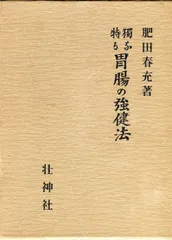 肥田春充著
獨特なる胃腸の強健法
壮神社